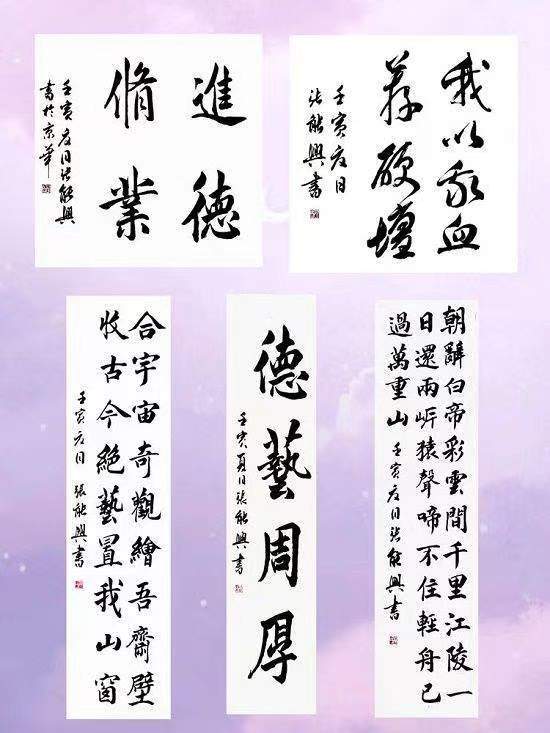 進德
脩業
壬寅夏日张能興
書於京華
我以我血
荐壇
壬寅夏日
张能興書
合宇宙奇觀繪吾齋壁
收古今絕藝置我山窗
壬寅夏日 張能興書
德藝周厚
壬寅夏日張能興書
朝辭白帝彩雲間千里江陵一
日還兩岍猿聲啼不住輕舟已
過萬重山 壬寅夏日张能興書